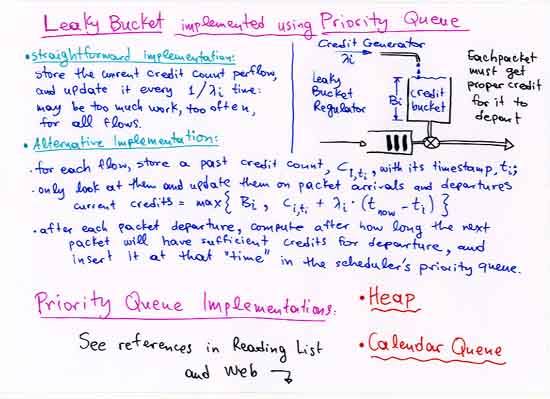 Leaky Bucket implemented using Priority Queue
• straightforward implementation:
store the current credit count perflow,
and update it every 1/λi time:
may be too much work, too often,
for all flows.
Credit Generator
λi
Leaky
Bucket
Regulator
Bi
credit
bucket
Each packet
must get
proper credit
for it to
depart
• Alternative Implementation:
· for each flow, store a past credit count, Ci,ti, with its timestamp, ti;
· only look at them and update them on packet arrivals and departures
current credits = max { Bi, ci,ti + λi · (tnow - ti) }
· after each packet departure, compute after how long the next
packet will have sufficient credits for departure, and
insert it at that "time" in the scheduler's priority queue.
Priority Queue Implementations:
• Heap
• Calendar Queue
See references in Reading List
and Web